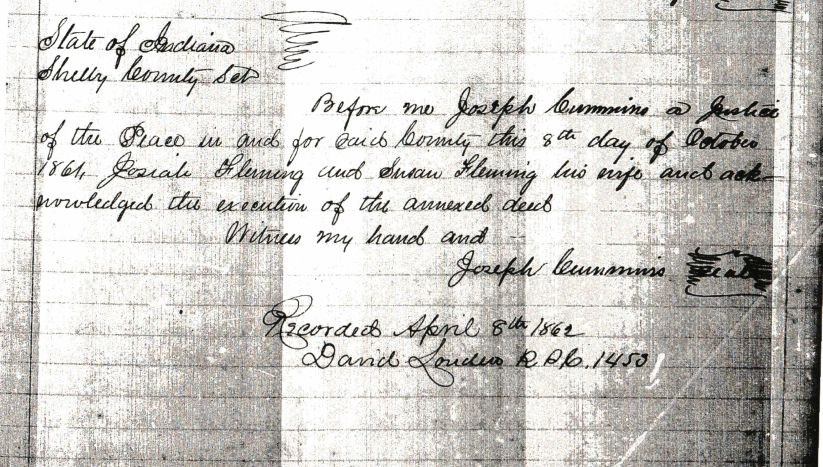 State of Indiana
Shelby County Sct
Before me Joseph Cummins a Justice
of the Peace in and for said County this 8th day of October
1861, Josiah Fleming and Susan Fleming his wife and ack-
nowledged the execution of the annexed deed
Witness my hand and
Joseph Cummins seal
Recorded April 8th 1862
David Louden R.S.C. 1450